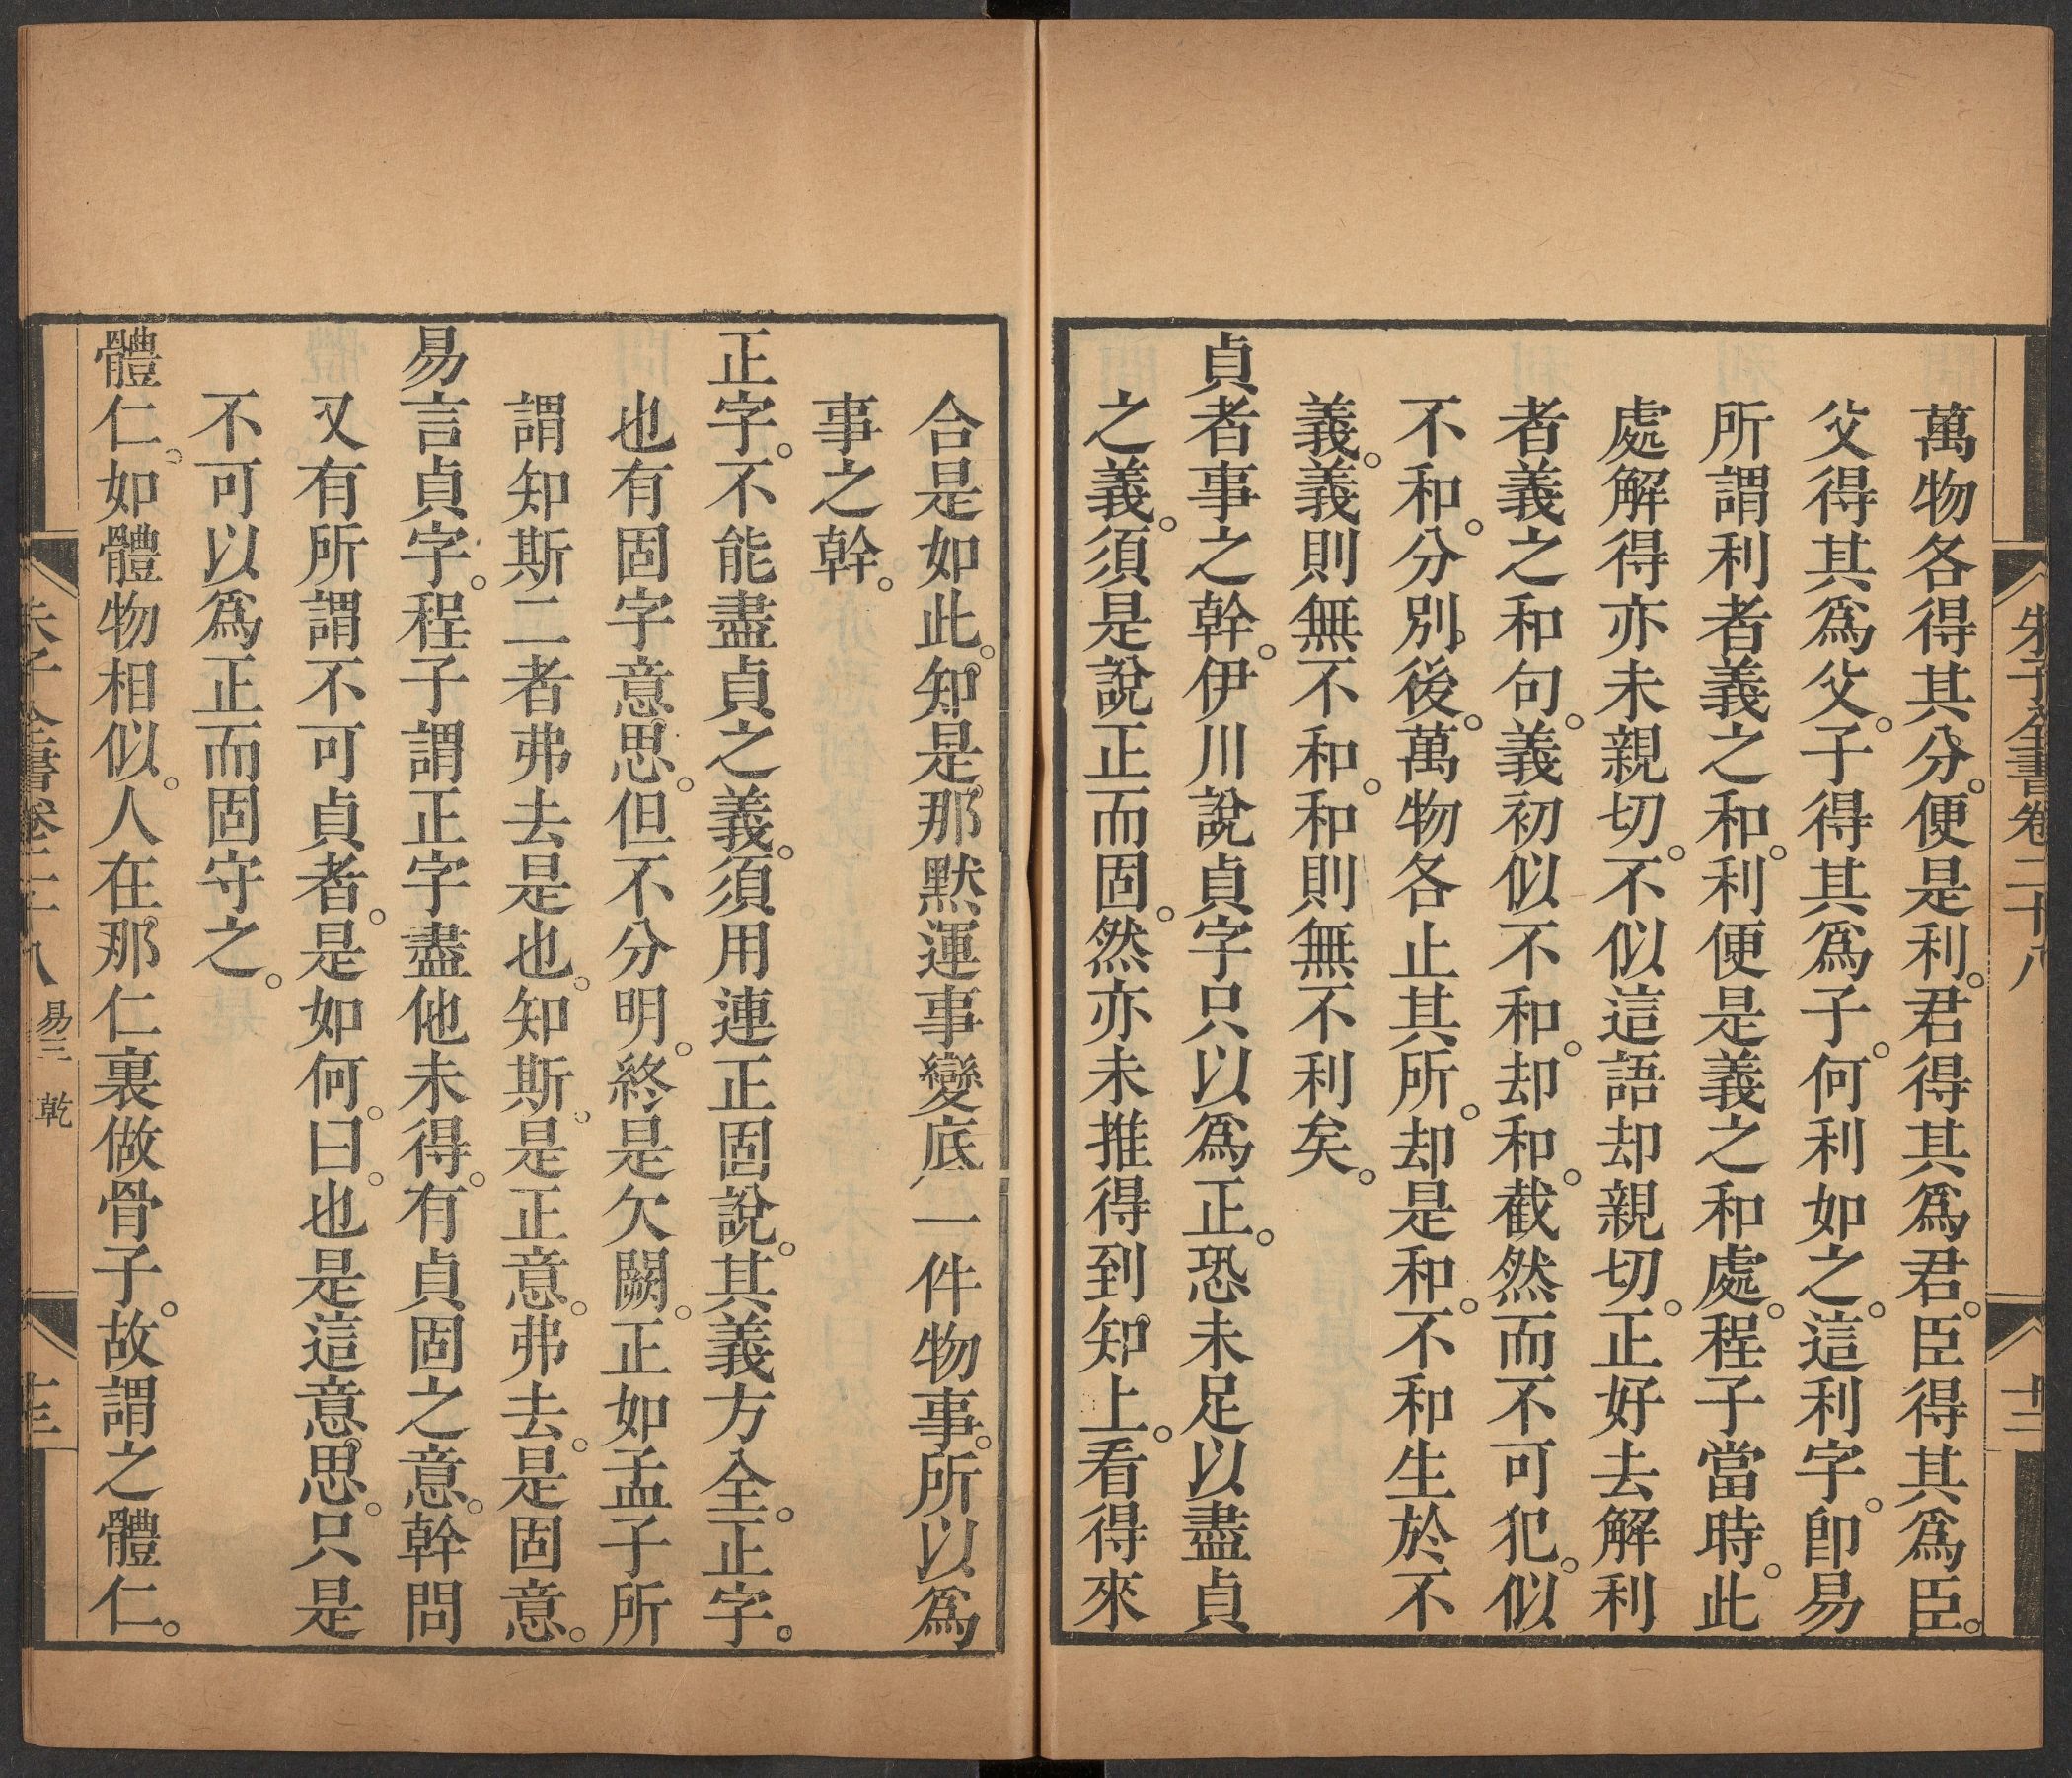 朱子全書卷二十八
十二
萬物各得其分。便是利。君得其爲君。臣得其爲臣。
父得其爲父。子得其爲子。何利如之。這利字。卽易
所謂利者義之和。利便是義之和處。程子當時。此
處解得亦未親切。不似這語却親切。正好去解利
者義之和句。義初似不和。却和。截然而不可犯。似
不和。分別後。萬物各止其所。却是和。不和生於不
義。義則無不和。和則無不利矣。
貞者事之幹。伊川說貞字只以爲正。恐未足以盡貞
之義。須是說正而固。然亦未推得到知上。看得來
合是如此。知是那默運事變底一件物事。所以爲
事之幹。
正字。不能盡貞之義。須用連正固說。其義方全。正字。
也有固字意思。但不分明。終是欠闕。正如孟子所
謂知斯二者弗去是也。知斯。是正意。弗去。是固意。
易言貞字。程子謂正字盡他未得。有貞固之意。幹問
又有所謂不可貞者。是如何。曰。也是這意思。只是
不可以爲正而固守之。
體仁。如體物相似。人在那仁裏做骨子。故謂之體仁。
朱子全書卷二十八
易三 乾
十三